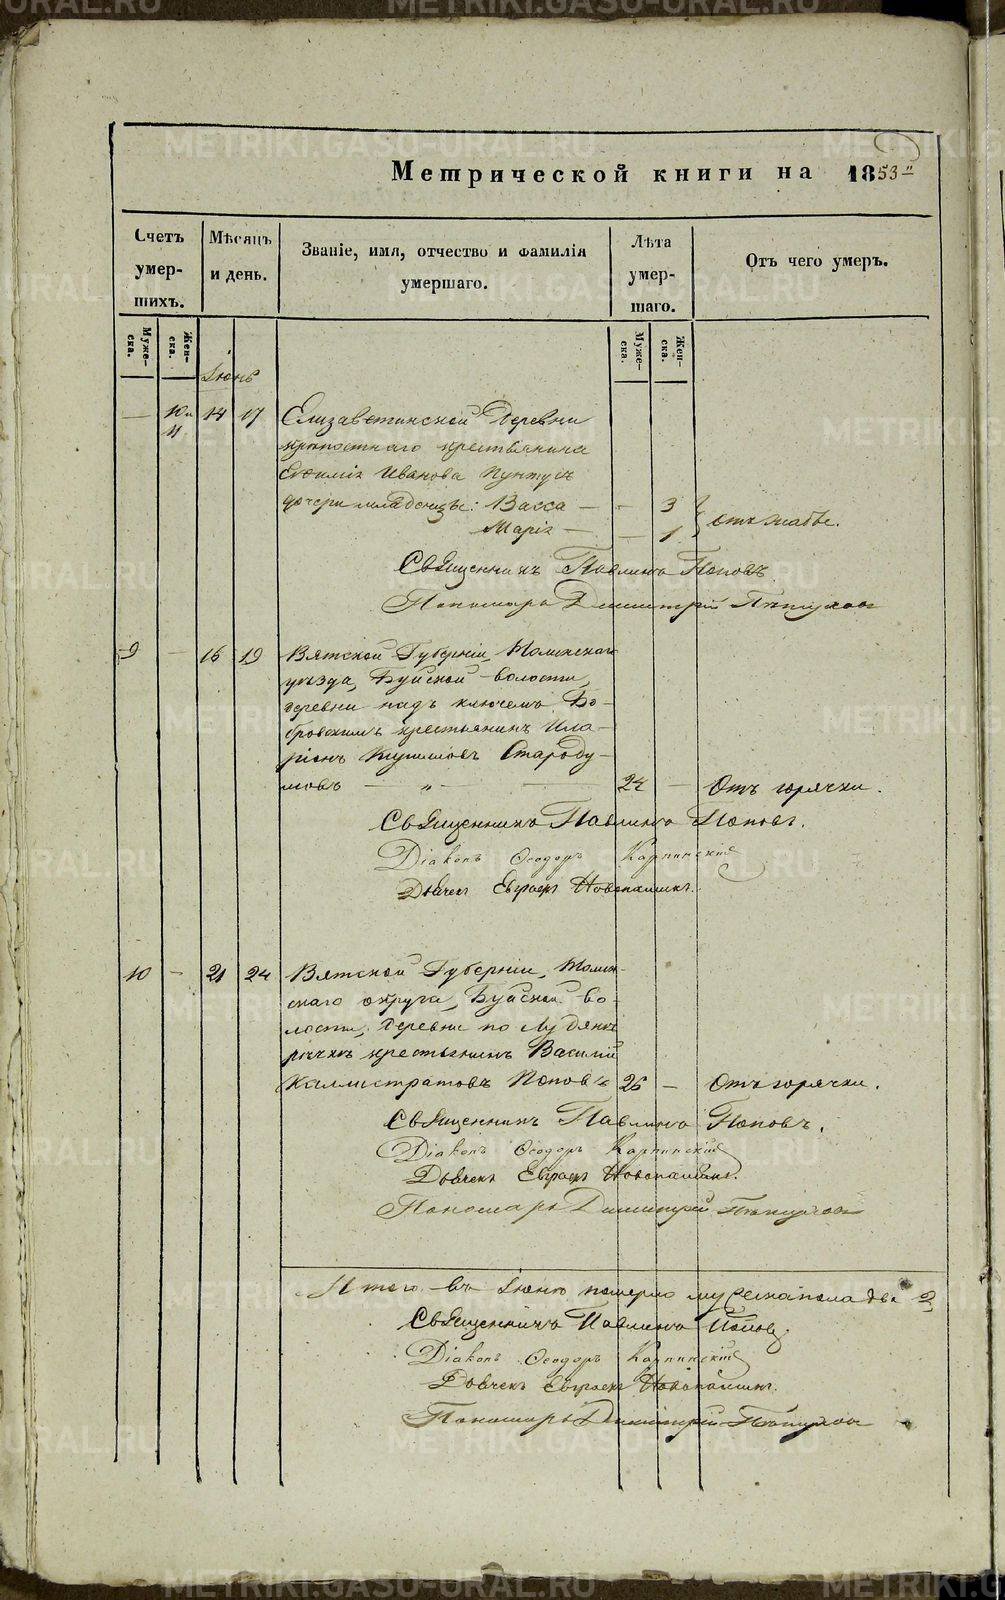 Метрической книги на 1853й
Счетъ умершихъ.
Мѣсяцъ и день.
Званіе, имя, отчество и фамилія умершаго.
Лѣта умершаго.
Отъ чего умеръ.
Мужеска.
Женска.
Мужеска.
Женска.
Іюнь
— 10 и 11 14 17 Елизаветинской деревни
крѣпостнаго крестьянина
Иванова
дочери младенцы: Васса — — 3
Марія — — 1
отъ жабы.
Священникъ Павлинъ Поповъ
Пономарь Димитрій
9 — 16 19 Вятской Губерніи, Малмыжскаго
уѣзда, Буйской волости,
деревни надъ ключемъ Бо-
бровскимъ крестьянинъ Ила-
ріонъ Староду-
мовъ — „ — 24 — Отъ горячки.
Священникъ Павлинъ Поповъ.
Діаконъ Ѳеодоръ Карпинскій
Дьячекъ Новопашинъ.
10 — 21 24 Вятской Губерніи, Малмыж-
скаго округа, Буйской во-
лости, деревни по
рѣчкѣ крестьянинъ Василій
Каллистратовъ Поповъ 26 — Отъ горячки.
Священникъ Павлинъ Поповъ.
Діаконъ Ѳеодоръ Карпинскій
Дьячекъ Новопашинъ.
Пономарь Димитрій
Итого въ Іюнѣ померло мужеска пола два 2
Священникъ Павлинъ Поповъ.
Діаконъ Ѳеодоръ Карпинскій
Дьячекъ Новопашинъ.
Пономарь Димитрій
METRIKI.GASO-URAL.RU